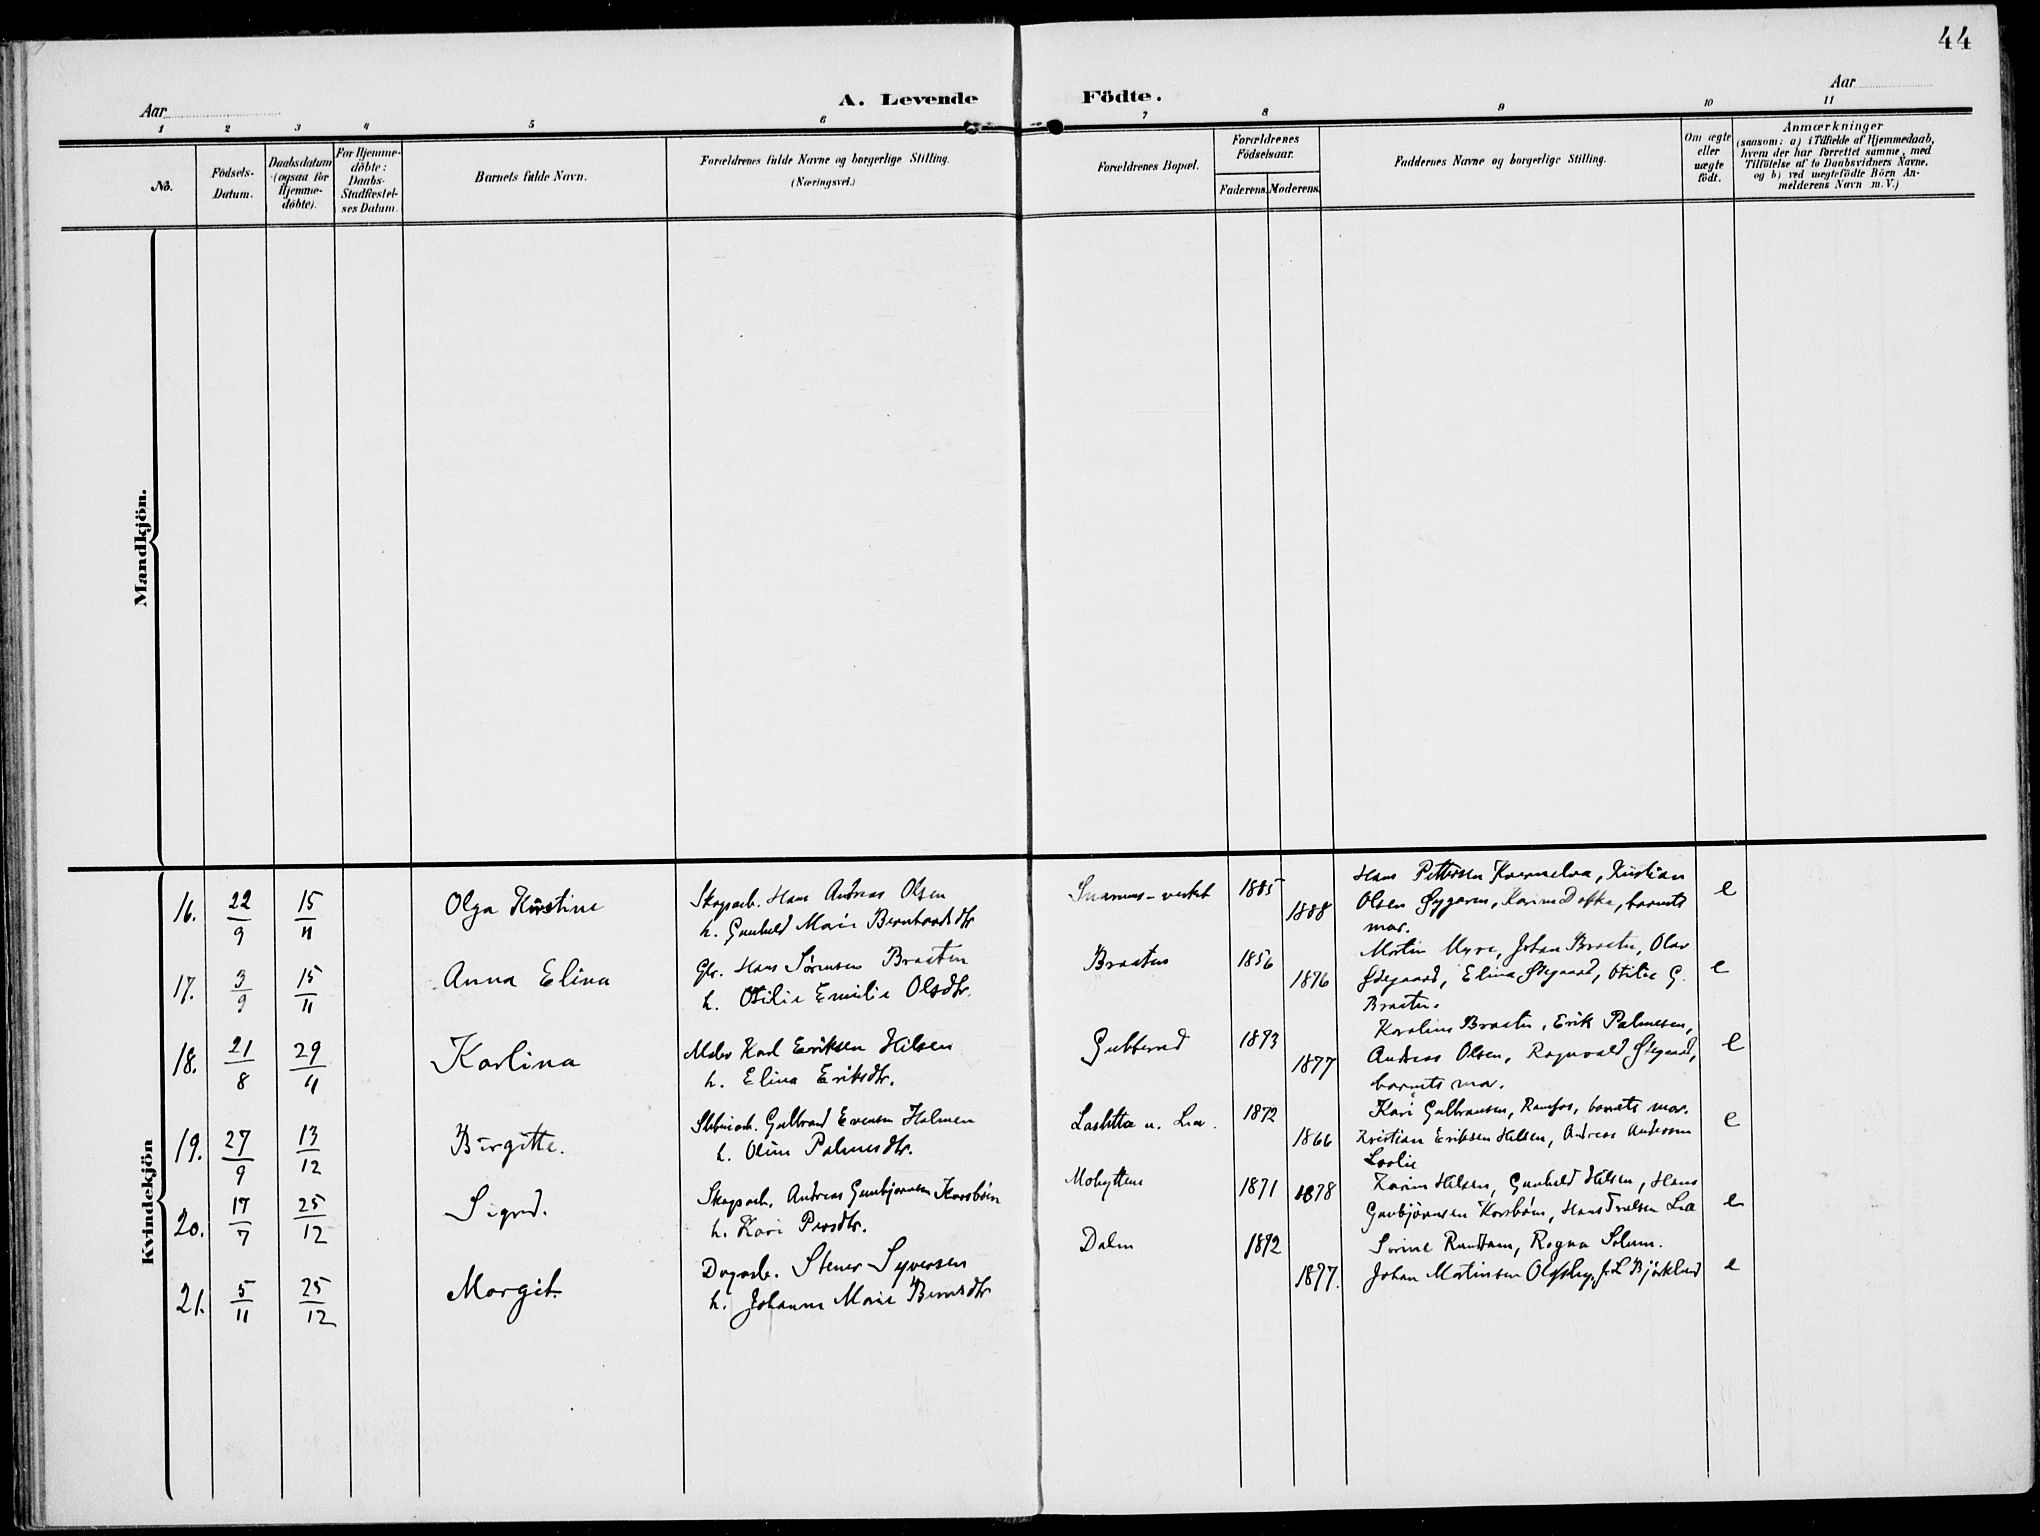 44
Aar
A. Levende Födte.
Aar
1 2 3 4 5 6 7 8 9 10 11
No.
Födsels-
Datum.
Daabsdatum
(ogsaa for
Hjemme-
döbte).
For Hjemme-
döbte:
Daabs-
Stadfæstel-
ses Datum.
Barnets fulde Navn.
Forældrenes fulde Navne og borgerlige Stilling.
(Næringsvei.)
Forældrenes Bopæl.
Forældrenes
Födselsaar.
Faderens. Moderens.
Faddernes Navne og borgerlige Stilling.
Om ægte
eller
uægte
födt.
Anmærkninger
(saasom: a) i Tilfælde af Hjemmedaab,
hvem der har forrettet samme, med
Tilföielse af to Daabsvidners Navne,
og b) ved uægtefödte Börn An-
melderens Navn m. V.)
Mandkjön.
Kvindekjön
16. 22/9 15/11 Olga Kristine
Skogsarb. Hans Andreas Olsen
h. Gunhild Marie Bernhardsdtr
1885
1888
Hans Pettersen Kvernelva, Kristian
Olsen Nygaren, Karine Dofka, barnets
mor.
e
17. 3/9 15/11 Anna Elina
Gbr. Hans Sørensen Braaten
h. Otilie Emilie Olsdtr.
Braaten
1856
1876
Martin Myre, Johan Braaten, Olav
Ødegaard, Elina Ødegaard, Otilie G.
Braaten.
e
18. 21/8 29/11 Karlina
Maler Karl Eriksen Hilsen
h. Elina Eriksdtr.
Gubberud
1873
1877
Karoline Braaten, Erik Palmesen,
Andreas Olsen, Ragnvald Ødegaard,
barnets mor.
e
19. 27/9 13/12 Birgitte.
Gulbrand Evensen Holmen
h. Oline Palmesdtr.
1872
1866
Kari Gulbransen, Ramfos, barnets mor.
Kristian Eriksen Hilsen, Andreas Andersen
e
20. 17/7 25/12 Sigrid.
Skogsarb. Andreas Gunbjørnsen Korsbøen
h. Kari Persdtr.
Mohyttene
1871 1878
Karen Hilsen, Gunhild Hilsen, Hans
Gunbjørnsen Korsbøen, Hans Truelsen Lia
e
21. 5/11 25/12 Margit.
Dagarb. Stener Syversen
h. Johanne Marie Berntsdtr
Dalen
1872
1877.
Sørine Rundtom, Ragna Solum.
Johan Martinsen Olafsby, J. L. Bjørklund
e